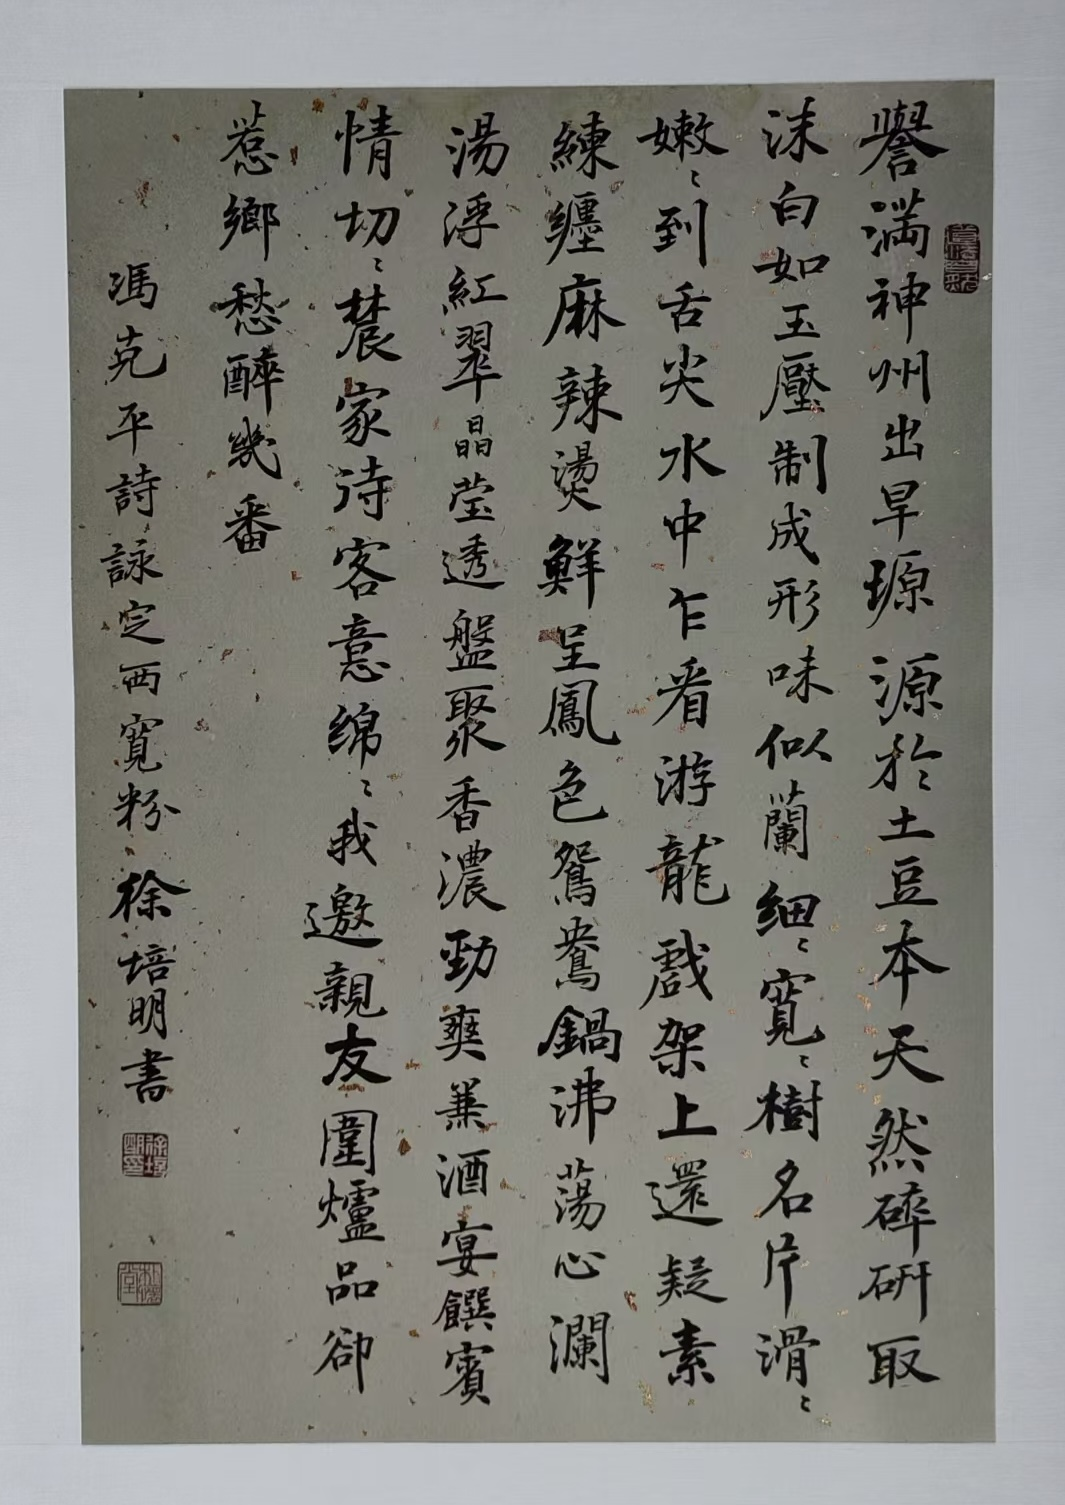 譽滿神州出旱塬源於土豆本天然碎研取
沫白如玉壓制成形味似蘭細〻寬〻樹名片滑〻
嫩〻到舌尖水中乍看游龍戲架上還疑素
練纏麻辣燙鮮呈鳳色鴛鴦鍋沸蕩心瀾
湯浮紅翠晶莹透盤聚香濃勁爽兼酒宴饌賓
情切〻農家待客意綿〻我邀親友圍爐品卻
惹鄉愁醉幾番
馮克平詩詠定西寬粉徐培明書